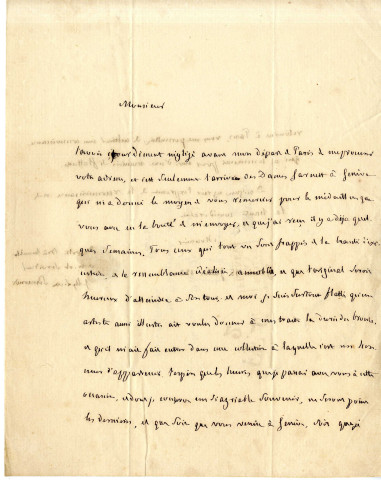 Monsieur
J'avois étourdiment négligé avant mon départ de Paris de me procurer
votre adresse, et c'est seulement l'arrivée des Dames à Genève
qui m'a donné le moyen de vous remercier pour le médaillon que
vous avez eu la bonté de m'envoyer, et que j'ai reçu il y a déjà quel-
ques semaines. Tous ceux qui l'ont vu sont frappés de la beauté d'exé-
cution, de la ressemblance idéalisée, ennoblie, et que l'original seroit
heureux d'atteindre et moi je suis surtout flatté qu'un
artiste aussi illustre ait voulu donner à mes traits la durée du bronze,
et qu'il m'ait fait entrer dans une collection à laquelle c'est un hon-
neur d'appartenir. quelques heures que j'ai passé avec vous à cette
occasion, et dont je conserve un si agréable souvenir, ne seront pas
les dernières, et que soit que vous veniez à Genève, soit que j'ai